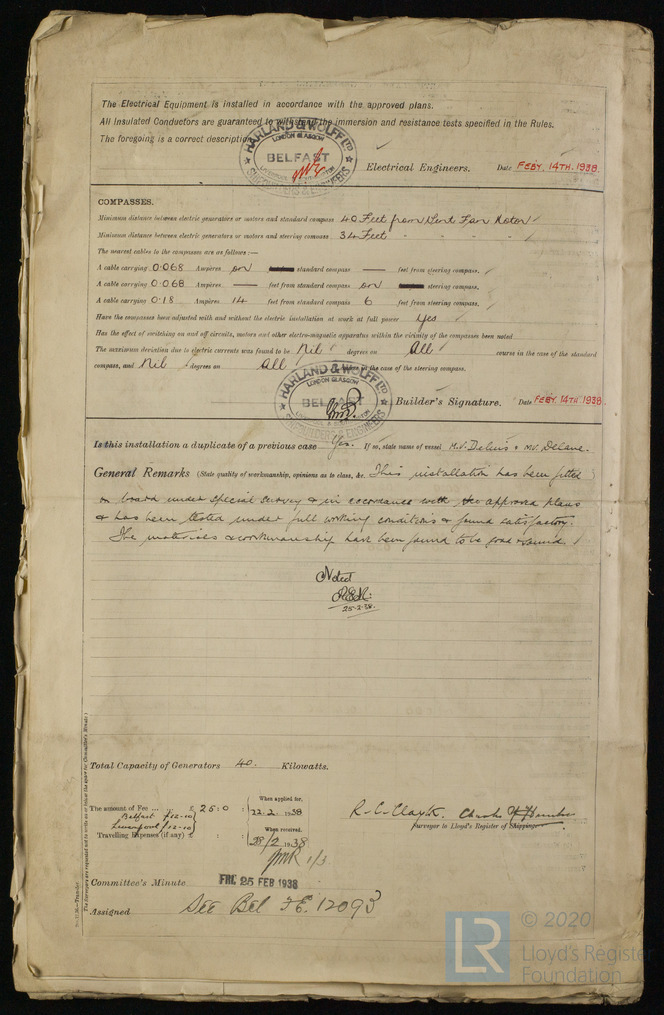 The Electrical Equipment is installed in accordance with the approved plans.
All Insulated Conductors are guaranteed to withstand the immersion and resistance tests specified in the Rules.
The foregoing is a correct description.
HARLAND & WOLFF LTD
LONDON GLASGOW
BELFAST
SHIPBUILDERS & ENGINEERS
Electrical Engineers. Date FEBY. 14TH. 1938.
COMPASSES.
Minimum distance between electric generators or motors and standard compass 40 Feet from Vent Fan Motor
Minimum distance between electric generators or motors and steering compass 34 Feet " " " "
The nearest cables to the compasses are as follows :—
A cable carrying 0.068 Amperes on standard compass — feet from steering compass.
A cable carrying 0.068 Amperes — feet from standard compass on steering compass.
A cable carrying 0.18 Amperes 14 feet from standard compass 6 feet from steering compass.
Have the compasses been adjusted with and without the electric installation at work at full power yes
Has the effect of switching on and off circuits, motors and other electro-magnetic apparatus within the vicinity of the compasses been noted
The maximum deviation due to electric currents was found to be Nil degrees on All course in the case of the standard
compass, and Nil degrees on All course in the case of the steering compass.
HARLAND & WOLFF LTD
LONDON GLASGOW
BELFAST
SHIPBUILDERS & ENGINEERS
Builder's Signature. Date FEBY. 14TH. 1938.
Is this installation a duplicate of a previous case Yes. If so, state name of vessel M.V. Delius & M.V. Delane.
General Remarks (State quality of workmanship, opinions as to class, &c. This installation has been fitted
on board under special survey & in accordance with the approved plans
& has been tested under full working conditions & found satisfactory.
The materials & workmanship have been found to be good & sound.
Noted
25-2-38.
Total Capacity of Generators 40. Kilowatts.
The amount of Fee ... £ 25:0 : When applied for, 22.2.1938
Belfast £12-10
Liverpool £12-10
Travelling Expenses (if any) £ : : When received, 28/2 1938
1/3
R. C. Clayton. Charles
Surveyor to Lloyd's Register of Shipping.
Committee's Minute FRI. 25 FEB 1938
Assigned See Bel F.E. 12093
The Surveyors are requested not to write on or below the space for Committee's Minute.
LR
© 2020
Lloyd's Register
Foundation